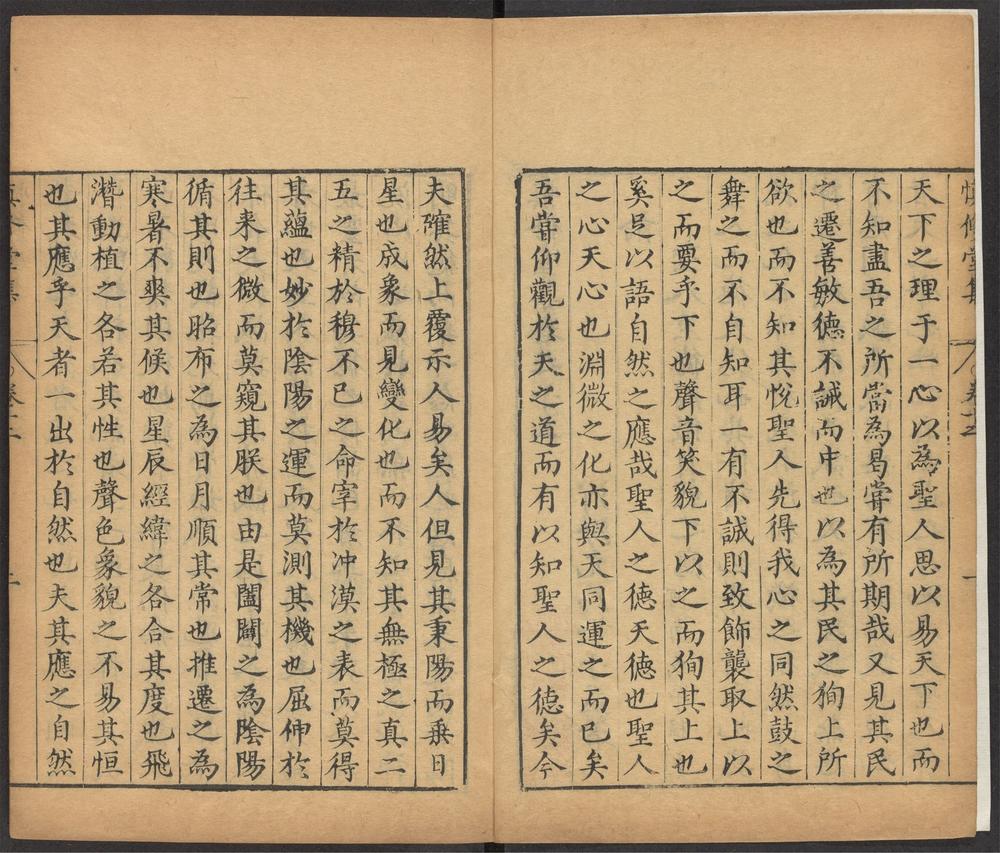 天下之理于一心以為聖人思以易天下也而
不知盡吾之所當為曷嘗有所期哉又見其民
之遷善敏德不誠而中也以為其民之狥上所
欲也而不知其悅聖人先得我心之同然鼓之
舞之而不自知耳一有不誠則致飾襲取上以
之而要乎下也聲音笑貌下以之而狥其上也
奚足以語自然之應哉聖人之德天德也聖人
之心天心也淵微之化亦與天同運之而已矣
吾嘗仰觀於天之道而有以知聖人之德矣今
夫確然上覆示人易矣人但見其秉陽而垂日
星也成象而見變化也而不知其無極之真二
五之精於穆不已之命宰於沖漠之表而莫得
其蘊也妙於陰陽之運而莫測其機也屈伸於
往来之微而莫窺其朕也由是闔闢之為陰陽
循其則也昭布之為日月順其常也推遷之為
寒暑不爽其候也星辰經緯之各合其度也飛
潛動植之各若其性也聲色象貌之不易其恒
也其應乎天者一出於自然也夫其應之自然